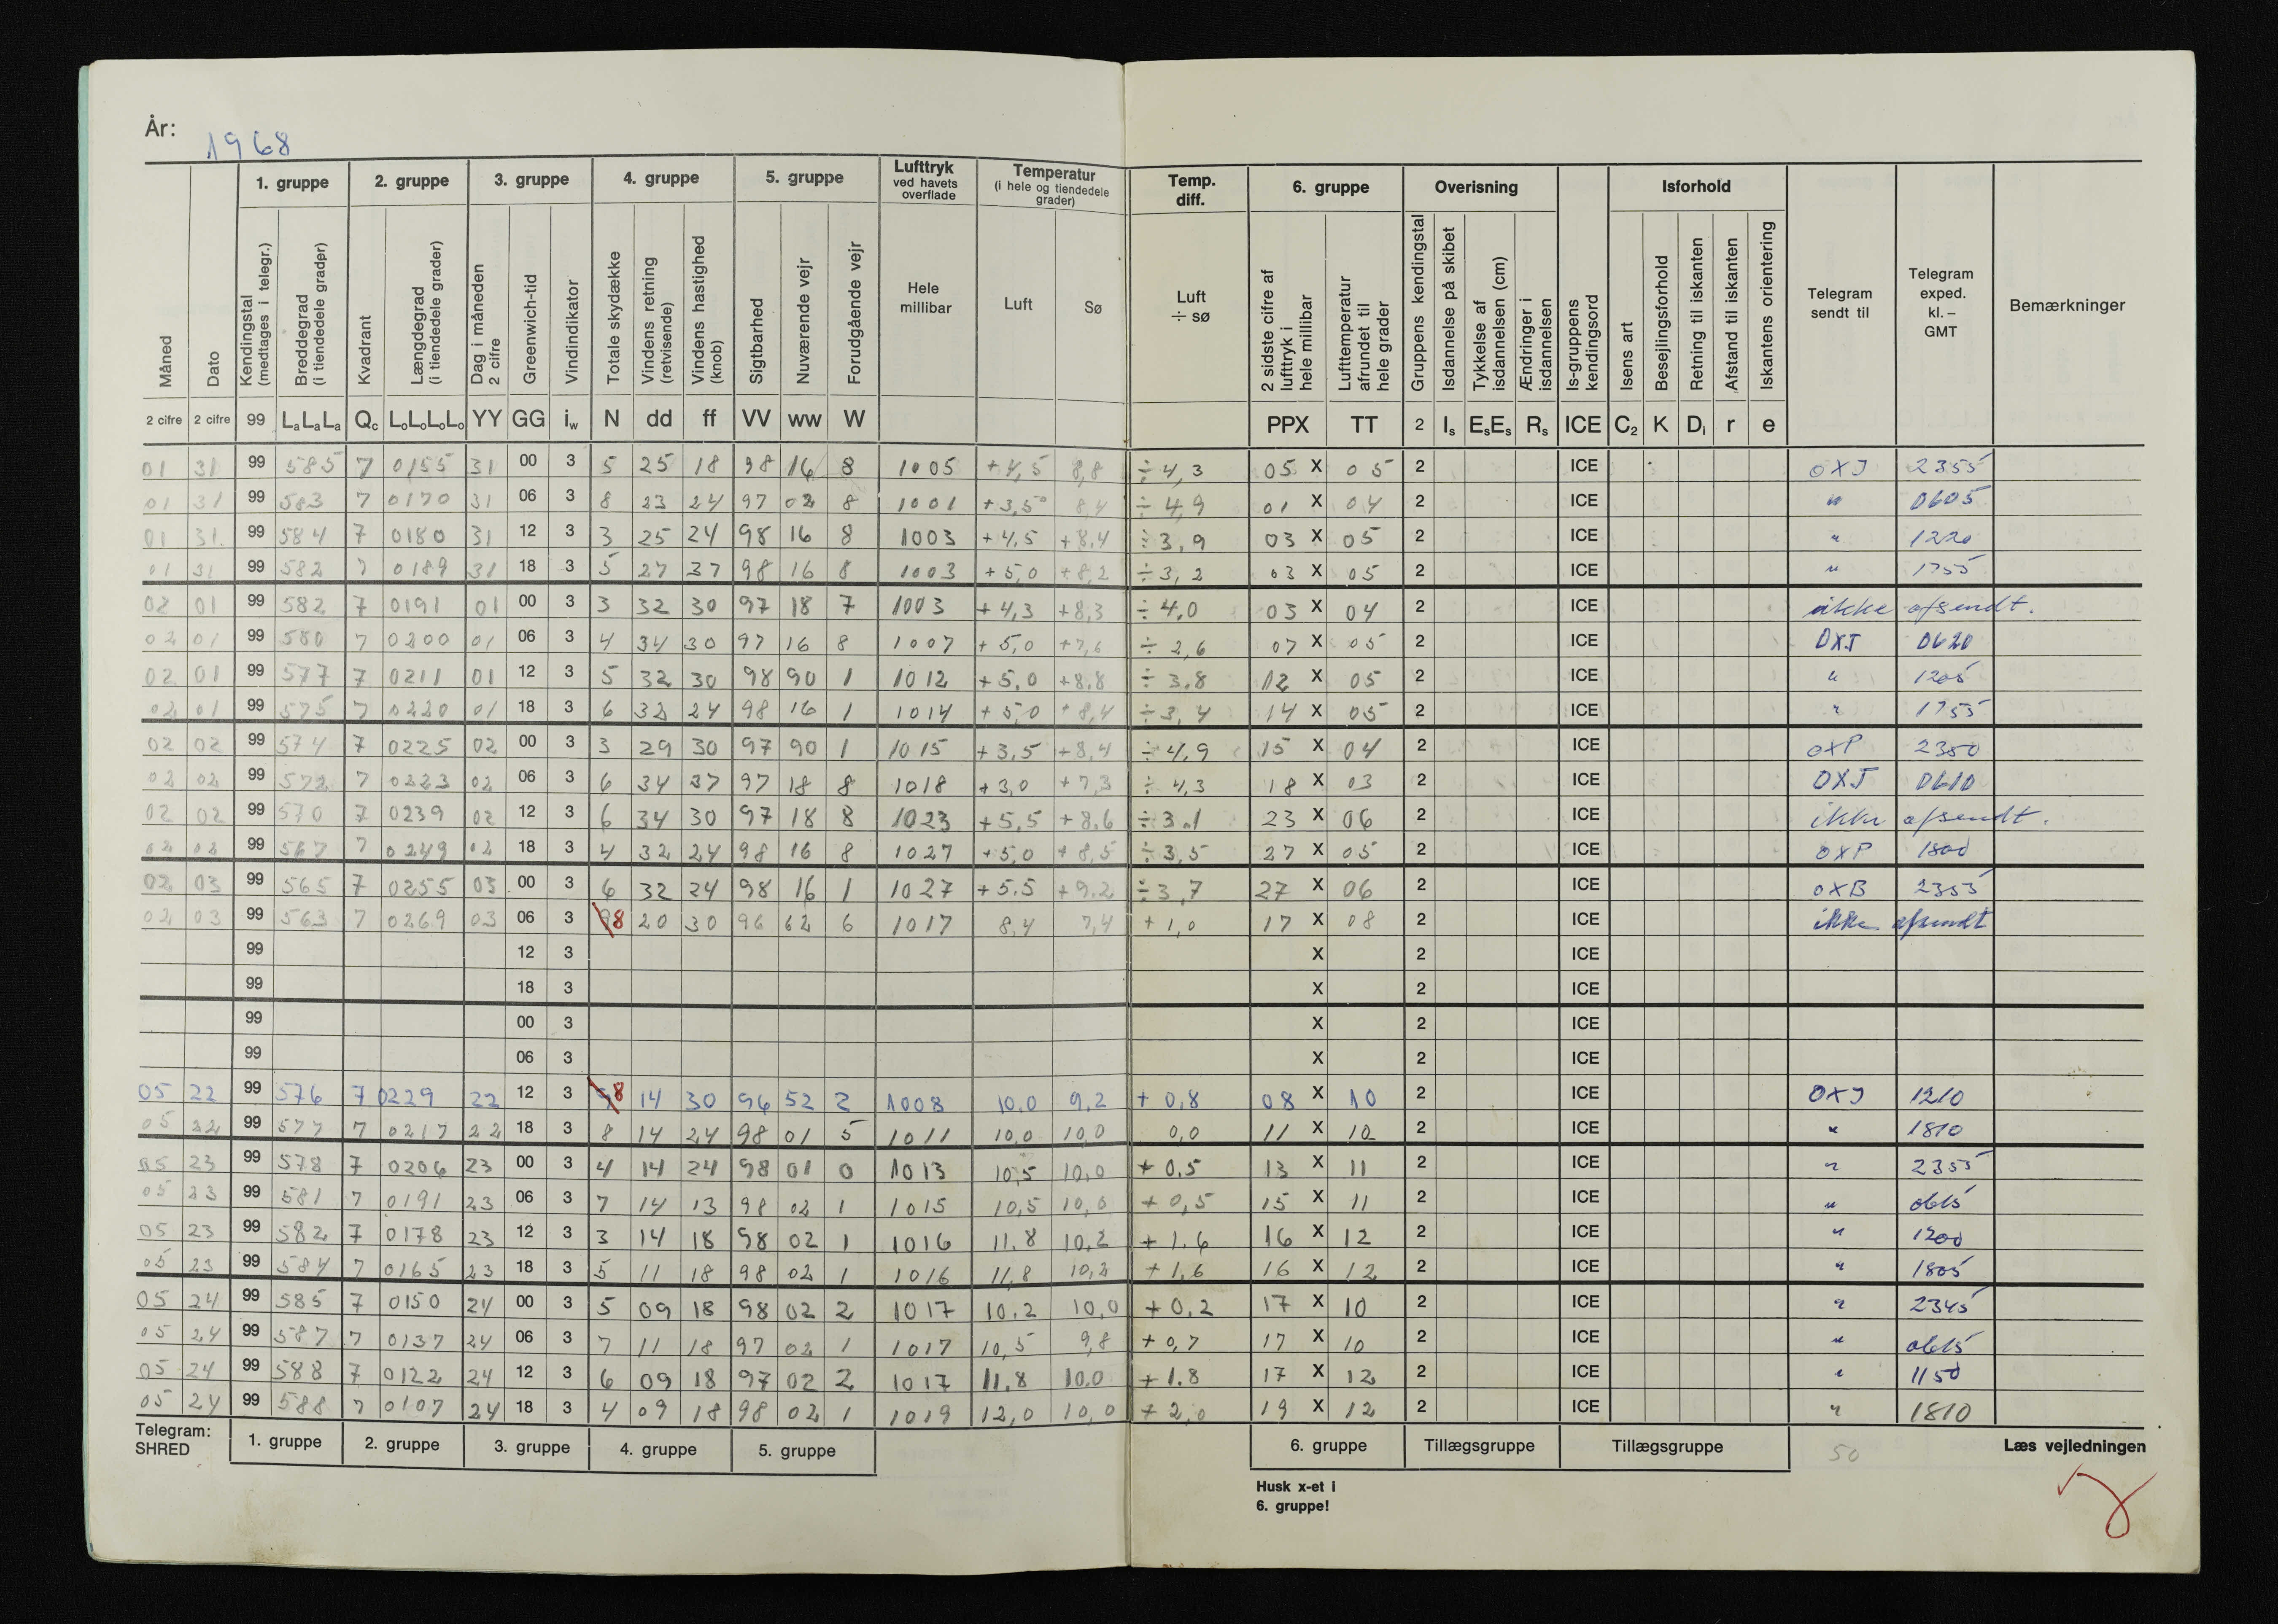 År: 1968
1. gruppe 2. gruppe 3. gruppe 4. gruppe 5. gruppe Lufttryk ved havets overflade Temperatur (i hele og tiendedele grader) Temp. diff. 6. gruppe Overisning Isforhold
Måned Dato Kendingstal (medtages i telegr.) Breddegrad (i tiendedele grader) Kvadrant Længdegrad (i tiendedele grader) Dag i måneden 2 cifre Greenwich-tid Vindindikator Totale skydække Vindens retning (retvisende) Vindens hastighed (knob) Sigtbarhed Nuværende vejr Forudgående vejr Hele millibar Luft Sø Luft ÷ sø 2 sidste cifre af lufttryk i hele millibar Lufttemperatur afrundet til hele grader Gruppens kendingstal Isdannelse på skibet Tykkelse af isdannelsen (cm) Ændringer i isdannelsen Is-gruppens kendingsord Isens art Besejlingsforhold Retning til iskanten Afstand til iskanten Iskantens orientering Telegram sendt til Telegram exped. kl. – GMT Bemærkninger
2 cifre 2 cifre 99 LaLaLa Qc LoLoLoLo YY GG iw N dd ff VV ww W PPX TT 2 Is EsEs Rs ICE C2 K Di r e
01 31 99 585 7 0155 31 00 3 5 25 18 98 16 8 1005 +4,5 8,8 ÷4,3 05 X 05 2 ICE OXJ 2355
01 31 99 583 7 0170 31 06 3 8 23 24 97 02 8 1001 +3,5° 8,4 ÷4,9 01 X 04 2 ICE " 0605
01 31. 99 584 7 0180 31 12 3 3 25 24 98 16 8 1003 +4,5 +8,4 ÷3,9 03 X 05 2 ICE " 1220
01 31 99 582 7 0189 31 18 3 5 27 37 98 16 8 1003 +5,0 +8,2 ÷3,2 03 X 05 2 ICE " 1755
02 01 99 582 7 0191 01 00 3 3 32 30 97 18 7 1003 +4,3 +8,3 ÷4,0 03 X 04 2 ICE ikke afsendt.
02 01 99 580 7 0200 01 06 3 4 34 30 97 16 8 1007 +5,0 +7,6 ÷2,6 07 X 05 2 ICE OXJ 0620
02 01 99 577 7 0211 01 12 3 5 32 30 98 90 1 1012 +5,0 +8,8 ÷3,8 12 X 05 2 ICE " 1205
02 01 99 575 7 0220 01 18 3 6 32 24 98 16 1 1014 +5,0 +8,4 ÷3,4 14 X 05 2 ICE " 1755
02 02 99 574 7 0225 02 00 3 3 29 30 97 90 1 1015 +3,5 +8,4 ÷4,9 15 X 04 2 ICE OXP 2350
02 02 99 572 7 0223 02 06 3 6 34 37 97 18 8 1018 +3,0 +7,3 ÷4,3 18 X 03 2 ICE OXJ 0610
02 02 99 570 7 0239 02 12 3 6 34 30 97 18 8 1023 +5,5 +8,6 ÷3,1 23 X 06 2 ICE ikke afsendt.
02 02 99 567 7 0249 02 18 3 4 32 24 98 16 8 1027 +5,0 +8,5 ÷3,5 27 X 05 2 ICE OXP 1800
02 03 99 565 7 0255 03 00 3 6 32 24 98 16 1 1027 +5.5 +9.2 ÷3,7 27 X 06 2 ICE OXB 2355
02 03 99 563 7 0269 03 06 3 8 20 30 96 62 6 1017 8,4 7,4 +1,0 17 X 08 2 ICE ikke afsendt
99 12 3 X 2 ICE
99 18 3 X 2 ICE
99 00 3 X 2 ICE
99 06 3 X 2 ICE
05 22 99 576 7 0229 22 12 3 8 14 30 96 52 2 1008 10,0 9,2 +0,8 08 X 10 2 ICE OXJ 1210
05 22 99 577 7 0217 22 18 3 8 14 24 98 01 5 1011 10,0 10,0 0,0 11 X 10 2 ICE " 1810
05 23 99 578 7 0206 23 00 3 4 14 24 98 01 0 1013 10,5 10,0 +0,5 13 X 11 2 ICE " 2355
05 23 99 581 7 0191 23 06 3 7 14 13 98 02 1 1015 10,5 10,0 +0,5 15 X 11 2 ICE " 0615
05 23 99 582 7 0178 23 12 3 3 14 18 98 02 1 1016 11.8 10,2 +1.6 16 X 12 2 ICE " 1200
05 23 99 584 7 0165 23 18 3 5 11 18 98 02 1 1016 11,8 10,2 +1,6 16 X 12 2 ICE " 1805
05 24 99 585 7 0150 24 00 3 5 09 18 98 02 2 1017 10.2 10,0 +0,2 17 X 10 2 ICE " 2345
05 24 99 587 7 0137 24 06 3 7 11 18 97 02 1 1017 10,5 9,8 +0,7 17 X 10 2 ICE " 0615
05 24 99 588 7 0122 24 12 3 6 09 18 97 02 2 1017 11.8 10.0 +1.8 17 X 12 2 ICE " 1150
05 24 99 588 7 0107 24 18 3 4 09 18 98 02 1 1019 12,0 10,0 +2,0 19 X 12 2 ICE " 1810
Telegram: SHRED 1. gruppe 2. gruppe 3. gruppe 4. gruppe 5. gruppe 6. gruppe Tillægsgruppe Tillægsgruppe 50 Læs vejledningen
Husk x-et i
6. gruppe!